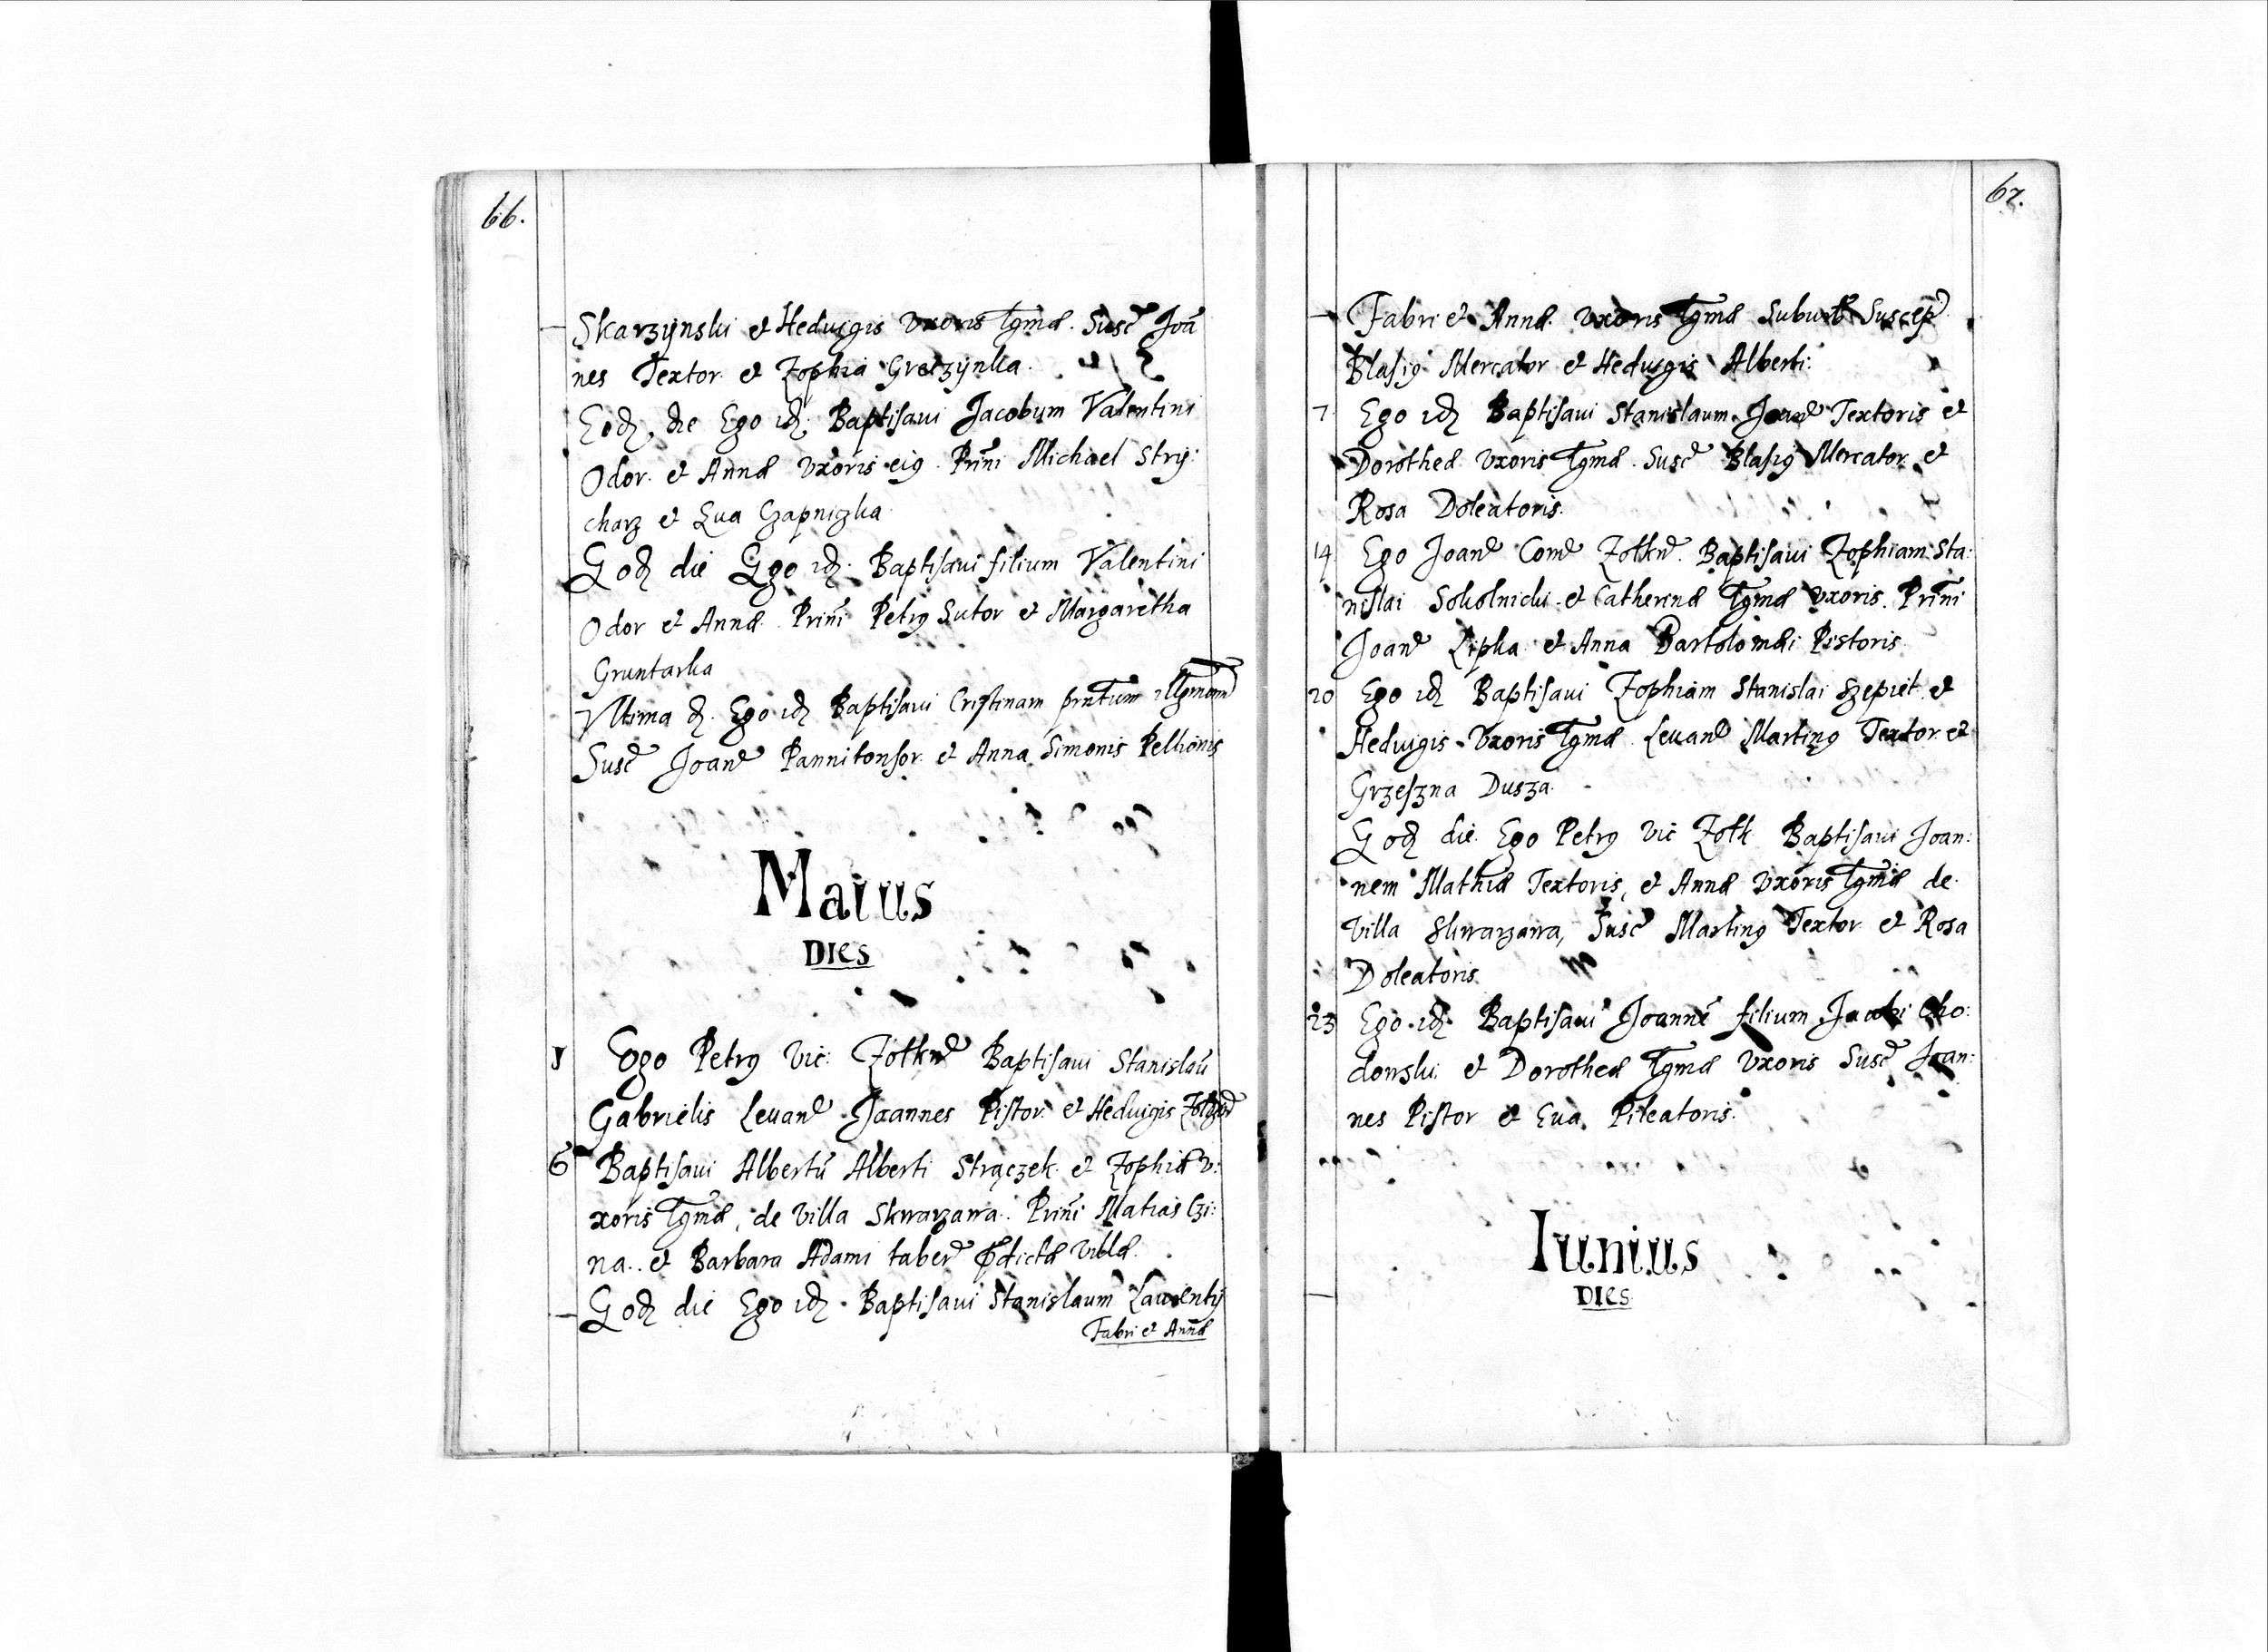 66.
Skarzÿnski et Heduigis Vxoris Lgmæ. Suscꝭ Joã
nes Textor et Zophia Greczÿnka.
Eodꝫ die Ego idꝫ Baptisaui Jacobum Valentini
Odor. et Annæ Vxoris eiꝰ. Prñi Michael Strÿ:
charz et Eua Czapniczka
Eodꝫ die Ego idꝫ. Baptisaui filium Valentini
Odor et Annæ. Prñi Petrꝰ Sutor et Margaretha
Gruntarka
Vltima d. Ego idꝫ Baptisaui Cristinam prntum
Suscꝭ Joanꝭ Pannitonsor et Anna Simonis Pellionis
Maius
DIES
1 Ego Petrꝰ Vic: Zołknꝭ Baptisaui Stanislaũ
Gabrielis Leuanꝭ Joannes Pistor. et Heduigis
6 Baptisaui Albertũ Alberti Strączek et Zophiæ v:
xoris Lgmæ, de Villa Skwarzawa. Prñi Matias Czi:
na. et Barbara Adami taberꝭ pdictæ villæ.
Eodꝫ die Ego idꝫ Baptisaui Stanislaum Laurentÿ
Fabri et Annæ
67.
Fabri et Annæ. Vxoris Lgmæ Suburb Suscepꝭ
Blasiꝰ Mercator et Heduigis Alberti:
7 Ego idꝫ Baptisaui Stanislaum Joanꝭ Textoris et
Dorotheæ Vxoris Lgmæ. Suscꝭ Blasiꝰ Mercator et
Rosa Doleatoris.
14 Ego Joanꝭ Comꝭ Zołknꝭ. Baptisaui Zophiam Sta:
nislai Sokolnicki et Catherinæ Lgmæ Vxoris. Prñi
Joanꝭ Lipka et Anna Bartolomæi Pistoris.
20 Ego idꝫ Baptisaui Zophiam Stanislai Szepiet et
Heduigis Vxoris Lgmæ. Leuanꝭ Martinꝰ Textor et
Grzeszna Dusza.
Eodꝫ die. Ego Petrꝰ Vic Zołk Baptisaui Joan:
nem Mathiæ Textoris, et Annæ Vxoris Lgmæ de
Villa Skwarzawa, Suscꝭ Martinꝰ Textor et Rosa
Doleatoris.
23 Ego idꝫ Baptisaui Joannẽ filium Jacobi Cho:
donski et Dorotheæ Lgmæ Vxoris Suscꝭ Joan:
nes Pistor et Eua Pileatoris.
Iunius
DIES